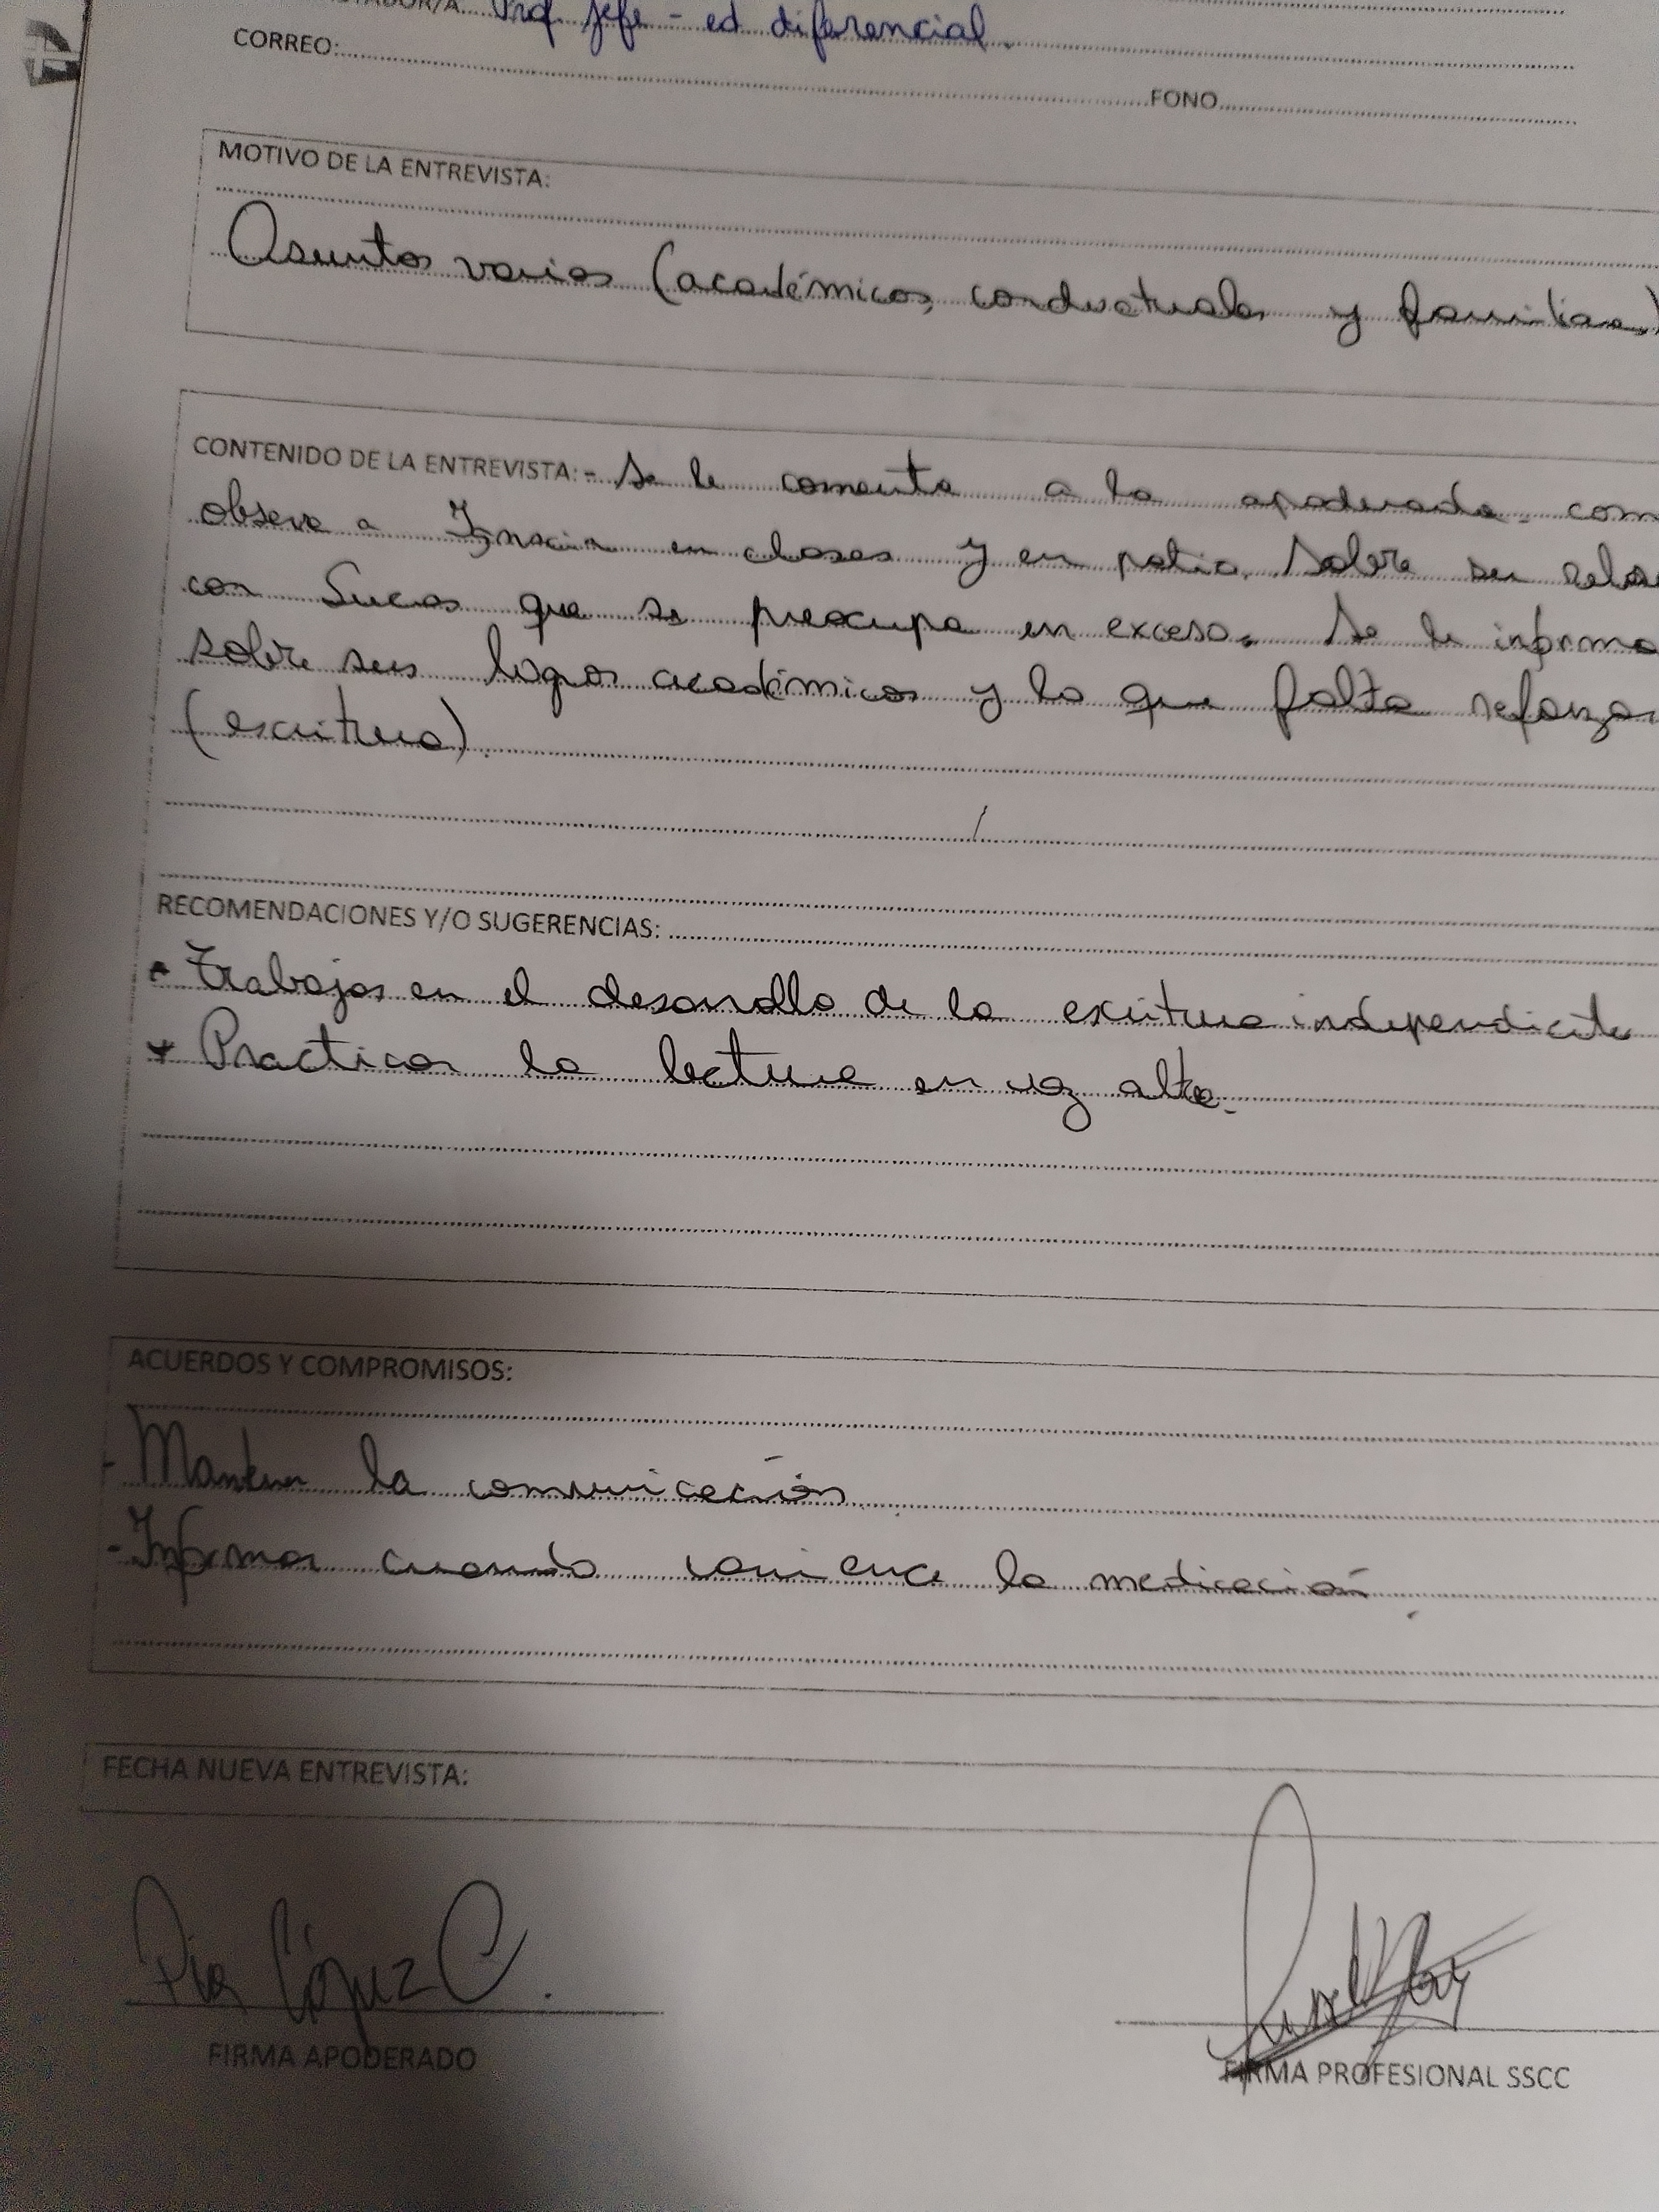 Prof Jefe - ed diferencial.
CORREO:
FONO
MOTIVO DE LA ENTREVISTA:
Asuntos varios (académicos, conductuales y familiares)
CONTENIDO DE LA ENTREVISTA: - Se le comenta a la apoderada. com
observa a en clases y en patio. Sobre su relac
con Lucas que se preocupa en exceso. Se le informa
sobre sus logros académicos y lo que falta reforzar
(escritura).
RECOMENDACIONES Y/O SUGERENCIAS:
* Trabajos en el desarrollo de la escritura independiente
* Practicar la lectura en voz alta.
ACUERDOS Y COMPROMISOS:
- Mantener la comunicación
- Informar cuando comience la medicación.
FECHA NUEVA ENTREVISTA:
Pia López C.
FIRMA APODERADO
FIRMA PROFESIONAL SSCC